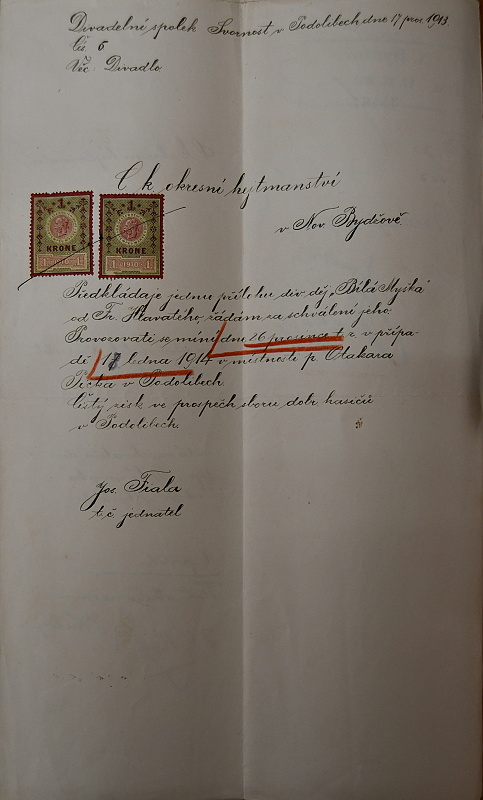 Divadelní spolek Svornost v Podolibech dne 17 pros. 1913.
čís. 6
Věc. Divadlo
C k okresní hejtmanství
v Nov. Bydčově.
1 1
KRONE KRONE
1 1 1 1910 1
Předkládaje jednu přílohu div. děj. „Bílá Myška"
od Fr. Hlavatého, žádám za schválení jeho.
Provozovati se míní dne 26 prosence t. r. v přípa-
dě 17 ledna 1914 v místnosti p. Otakara
Pička v Podolibech.
Čistý zisk ve prospěch sboru dobr. hasičů
v Podolibech.
Jos. Fiala
t. č. jednatel